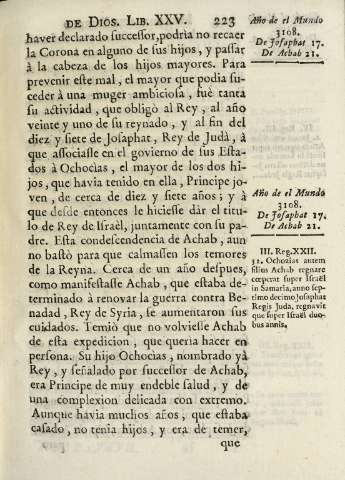 DE DIOS. LIB. XXV. 223
haver declarado successor, podria no recaer
la Corona en alguno de sus hijos, y passar
à la cabeza de los hijos mayores. Para
prevenir este mal, el mayor que podia su-
ceder à una muger ambiciosa, fuè tanta
su actividad, que obligò al Rey, al año
veinte y uno de su reynado, y al fin del
diez y siete de Josaphat, Rey de Judà, à
que associasse en el govierno de sus Esta-
dos à Ochocìas, el mayor de los dos hi-
jos, que havia tenido en ella, Principe jo-
ven, de cerca de diez y siete años; y à
que desde entonces le hiciesse dàr el titu-
lo de Rey de Israël, juntamente con su pa-
dre. Esta condescendencia de Achab, aun
no bastò para que calmassen los temores
de la Reyna. Cerca de un año despues,
como manifestasse Achab, que estaba de-
terminado à renovar la guerra contra Be-
nadad, Rey de Syria, se aumentaron sus
cuidados. Temiò que no volviesse Achab
de esta expedicion, que queria hacer en
persona. Su hijo Ochocìas, nombrado yà
Rey, y señalado por successor de Achab,
era Principe de muy endeble salud, y de
una complexion delicada con extremo.
Aunque havia muchos años, que estaba
casado, no tenia hijos, y era de temer,
que
Año de el Mundo
3108.
De Josaphat 17.
De Achab 21.
Año de el Mundo
3108.
De Josaphat 17.
De Achab 21.
III. Reg. XXII.
52. Ochozias autem
filius Achab regnare
cœperat super Israël
in Samaria, anno sep-
timo decimo Josaphat
Regis Juda, regnavit
que super Israël duo-
bus annis.